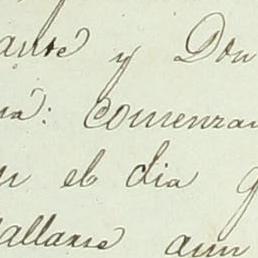 ante y Don
na: comenzan
n el dia q
allarse aun